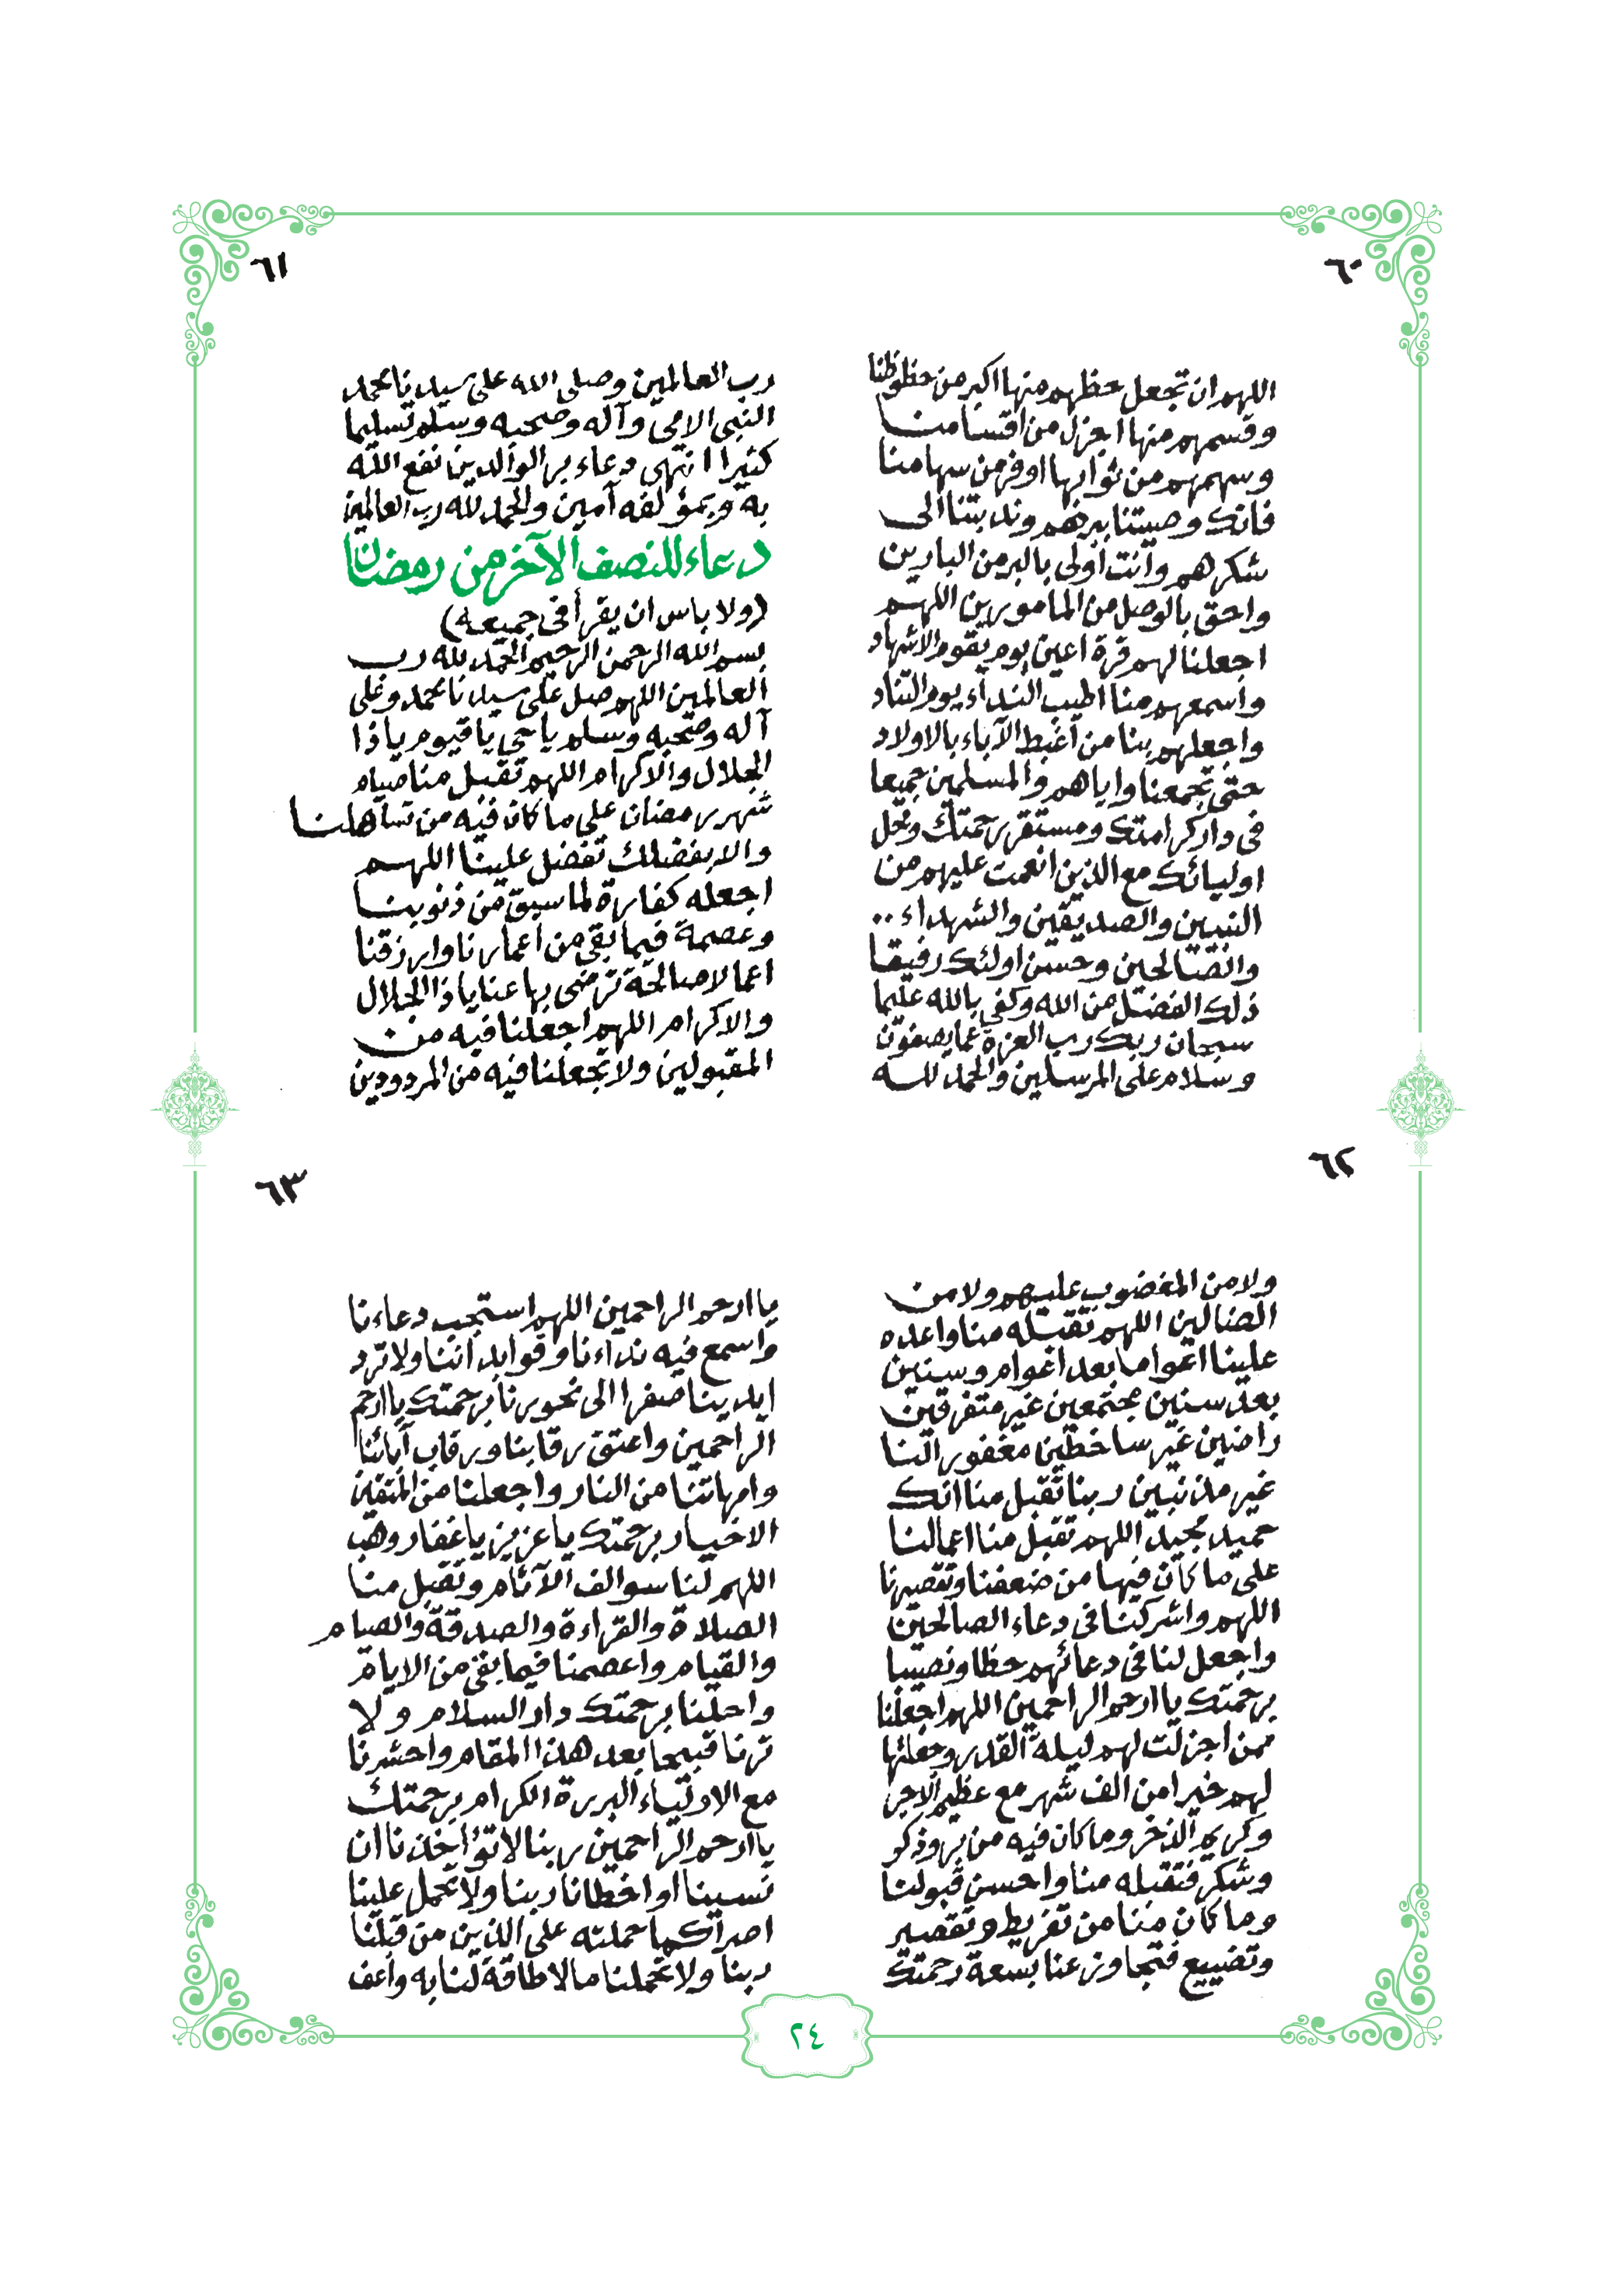 ٦٠
اللهم ان تجعل حظهم منها اكبر من حظوظنا
وقسمهم منها اجزل من اقسامنا
وسهمهم من ثوابها اوفر من سهامنا
فانك وصيتنا ببرهم وندبتنا الى
شكرهم وانت اولى بالبر من البارين
واحق بالوصل من المامورين اللهم
اجعلنا لهم قرة اعين يوم يقوم الاشهاد
واسمعهم منا اطيب النداء يوم التناد
واجعلهم بنا من أغبط الآباء بالاولاد
حتى تجمعنا واياهم والمسلمين جميعا
في دار كرامتك ومستقر رحمتك ومحل
اوليائك مع الذين انعمت عليهم من
النبيين والصديقين والشهداء ..
والصالحين وحسن اولئك رفيقا
ذلك الفضل من الله وكفى بالله عليما
سبحان ربك رب العزة عما يصفون
وسلام على المرسلين والحمد لله
٦١
رب العالمين وصلى الله على سيدنا محمد
النبي الامي وآله وصحبه وسلم تسليما
كثيرا انتهى دعاء بر الوالدين نفع الله
به وبمؤلفه آمين والحمد لله رب العالمين
دعاء للنصف الآخر من رمضان
(ولا باس ان يقرأ في جميعه)
بسم الله الرحمن الرحيم الحمد لله رب
العالمين اللهم صل على سيدنا محمد وعلى
آله وصحبه وسلم ياحي ياقيوم ياذا
الجلال والاكرام اللهم تقبل منا صيام
شهر رمضان على ما كان فيه من تساهلنا
والا بفضلك تفضل علينا اللهم
اجعله كفارة لما سبق من ذنوبنا
وعصمة فيما بقي من أعمارنا وارزقنا
اعمالا صالحة ترضى بها عنا ياذا الجلال
والاكرام اللهم اجعلنا فيه من
المقبولين ولا تجعلنا فيه من المردودين
٦٢
ولا من المغضوب عليهم ولا من
الضالين اللهم تقبله منا واعده
علينا اعواما بعد اعوام وسنين
بعد سنين مجتمعين غير متفرقين
راضين غير ساخطين مغفور النا
غير مذنبين ربنا تقبل منا انك
حميد مجيد اللهم تقبل منا اعمالنا
على ما كان فيها من ضعفنا وتقصيرنا
اللهم واشركنا في دعاء الصالحين
واجعل لنا في دعائهم حظا ونصيبا
برحمتك يا ارحم الراحمين اللهم اجعلنا
ممن اجزلت لهم ليلة القدر وجعلتها
لهم خيرا من الف شهر مع عظيم الاجر
وكريم الذخر وما كان فيه من بر وذكر
وشكر فتقبله منا واحسن قبولنا
وما كان منا من تفريط وتقصير
وتضييع فتجاوز عنا بسعة رحمتك
٦٣
يا ارحم الراحمين اللهم استجب دعاءنا
واسمع فيه نداءنا وقوابد اننا ولا ترد
ايدينا صفرا الى نحورنا برحمتك يا ارحم
الراحمين واعتق رقابنا ورقاب آبائنا
وامهاتنا من النار واجعلنا من المتقين
الاخيار برحمتك يا عزيز يا غفار وهب
اللهم لنا سوالف الآثام وتقبل منا
الصلاة والقراءة والصدقة والصيام
والقيام واعصمنا فيما بقي من الايام
واحلنا برحمتك دار السلام ولا
ترنا قبيحا بعد هذا المقام واحشرنا
مع الاولياء البررة الكرام برحمتك
يا ارحم الراحمين ربنا لا تؤاخذنا ان
نسينا او اخطانا ربنا ولا تحمل علينا
اصرا كما حملته على الذين من قبلنا
ربنا ولا تحملنا ما لا طاقة لنا به واعف
٢٤